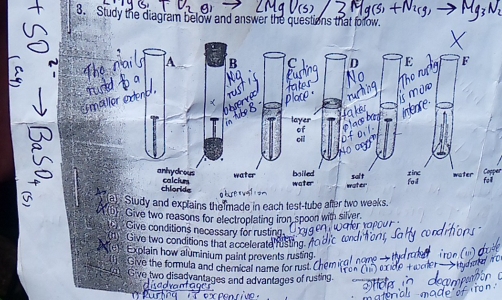 2Mg(s) + O2(g) → 2MgO(s) / 3Mg(s) + N2(g) → Mg3N2
3. Study the diagram below and answer the questions that follow.
A
B
C
D
E
F
X
The nails
rusted to a
smaller extend.
No
rust is
observed
in tube B
Rusting
takes
place.
No
rusting
takes
place because
of oil.
No oxygen
The rusting
is more
intense.
layer
of
oil
anhydrous
calcium
chloride
water
boiled
water
salt
water
zinc
foil
water
Copper
foil
+ SO4 2- (aq) → BaSO4 (s)
observation
(a) Study and explains the made in each test-tube after two weeks.
(b) Give two reasons for electroplating iron spoon with silver.
(c) Give conditions necessary for rusting. Oxygen, water vapour.
(d) Give two conditions that accelerate rusting. Acidic conditions, Salty conditions.
(e) Explain how aluminium paint prevents rusting.
(f) Give the formula and chemical name for rust. Chemical name → Hydrated iron (iii) oxide
iron (iii) oxide + water → Hydrated iron
Give two disadvantages and advantages of rusting.
disadvantages
1) Rusting is expensive.
2) Helps in decomposition of
materials made of iron.